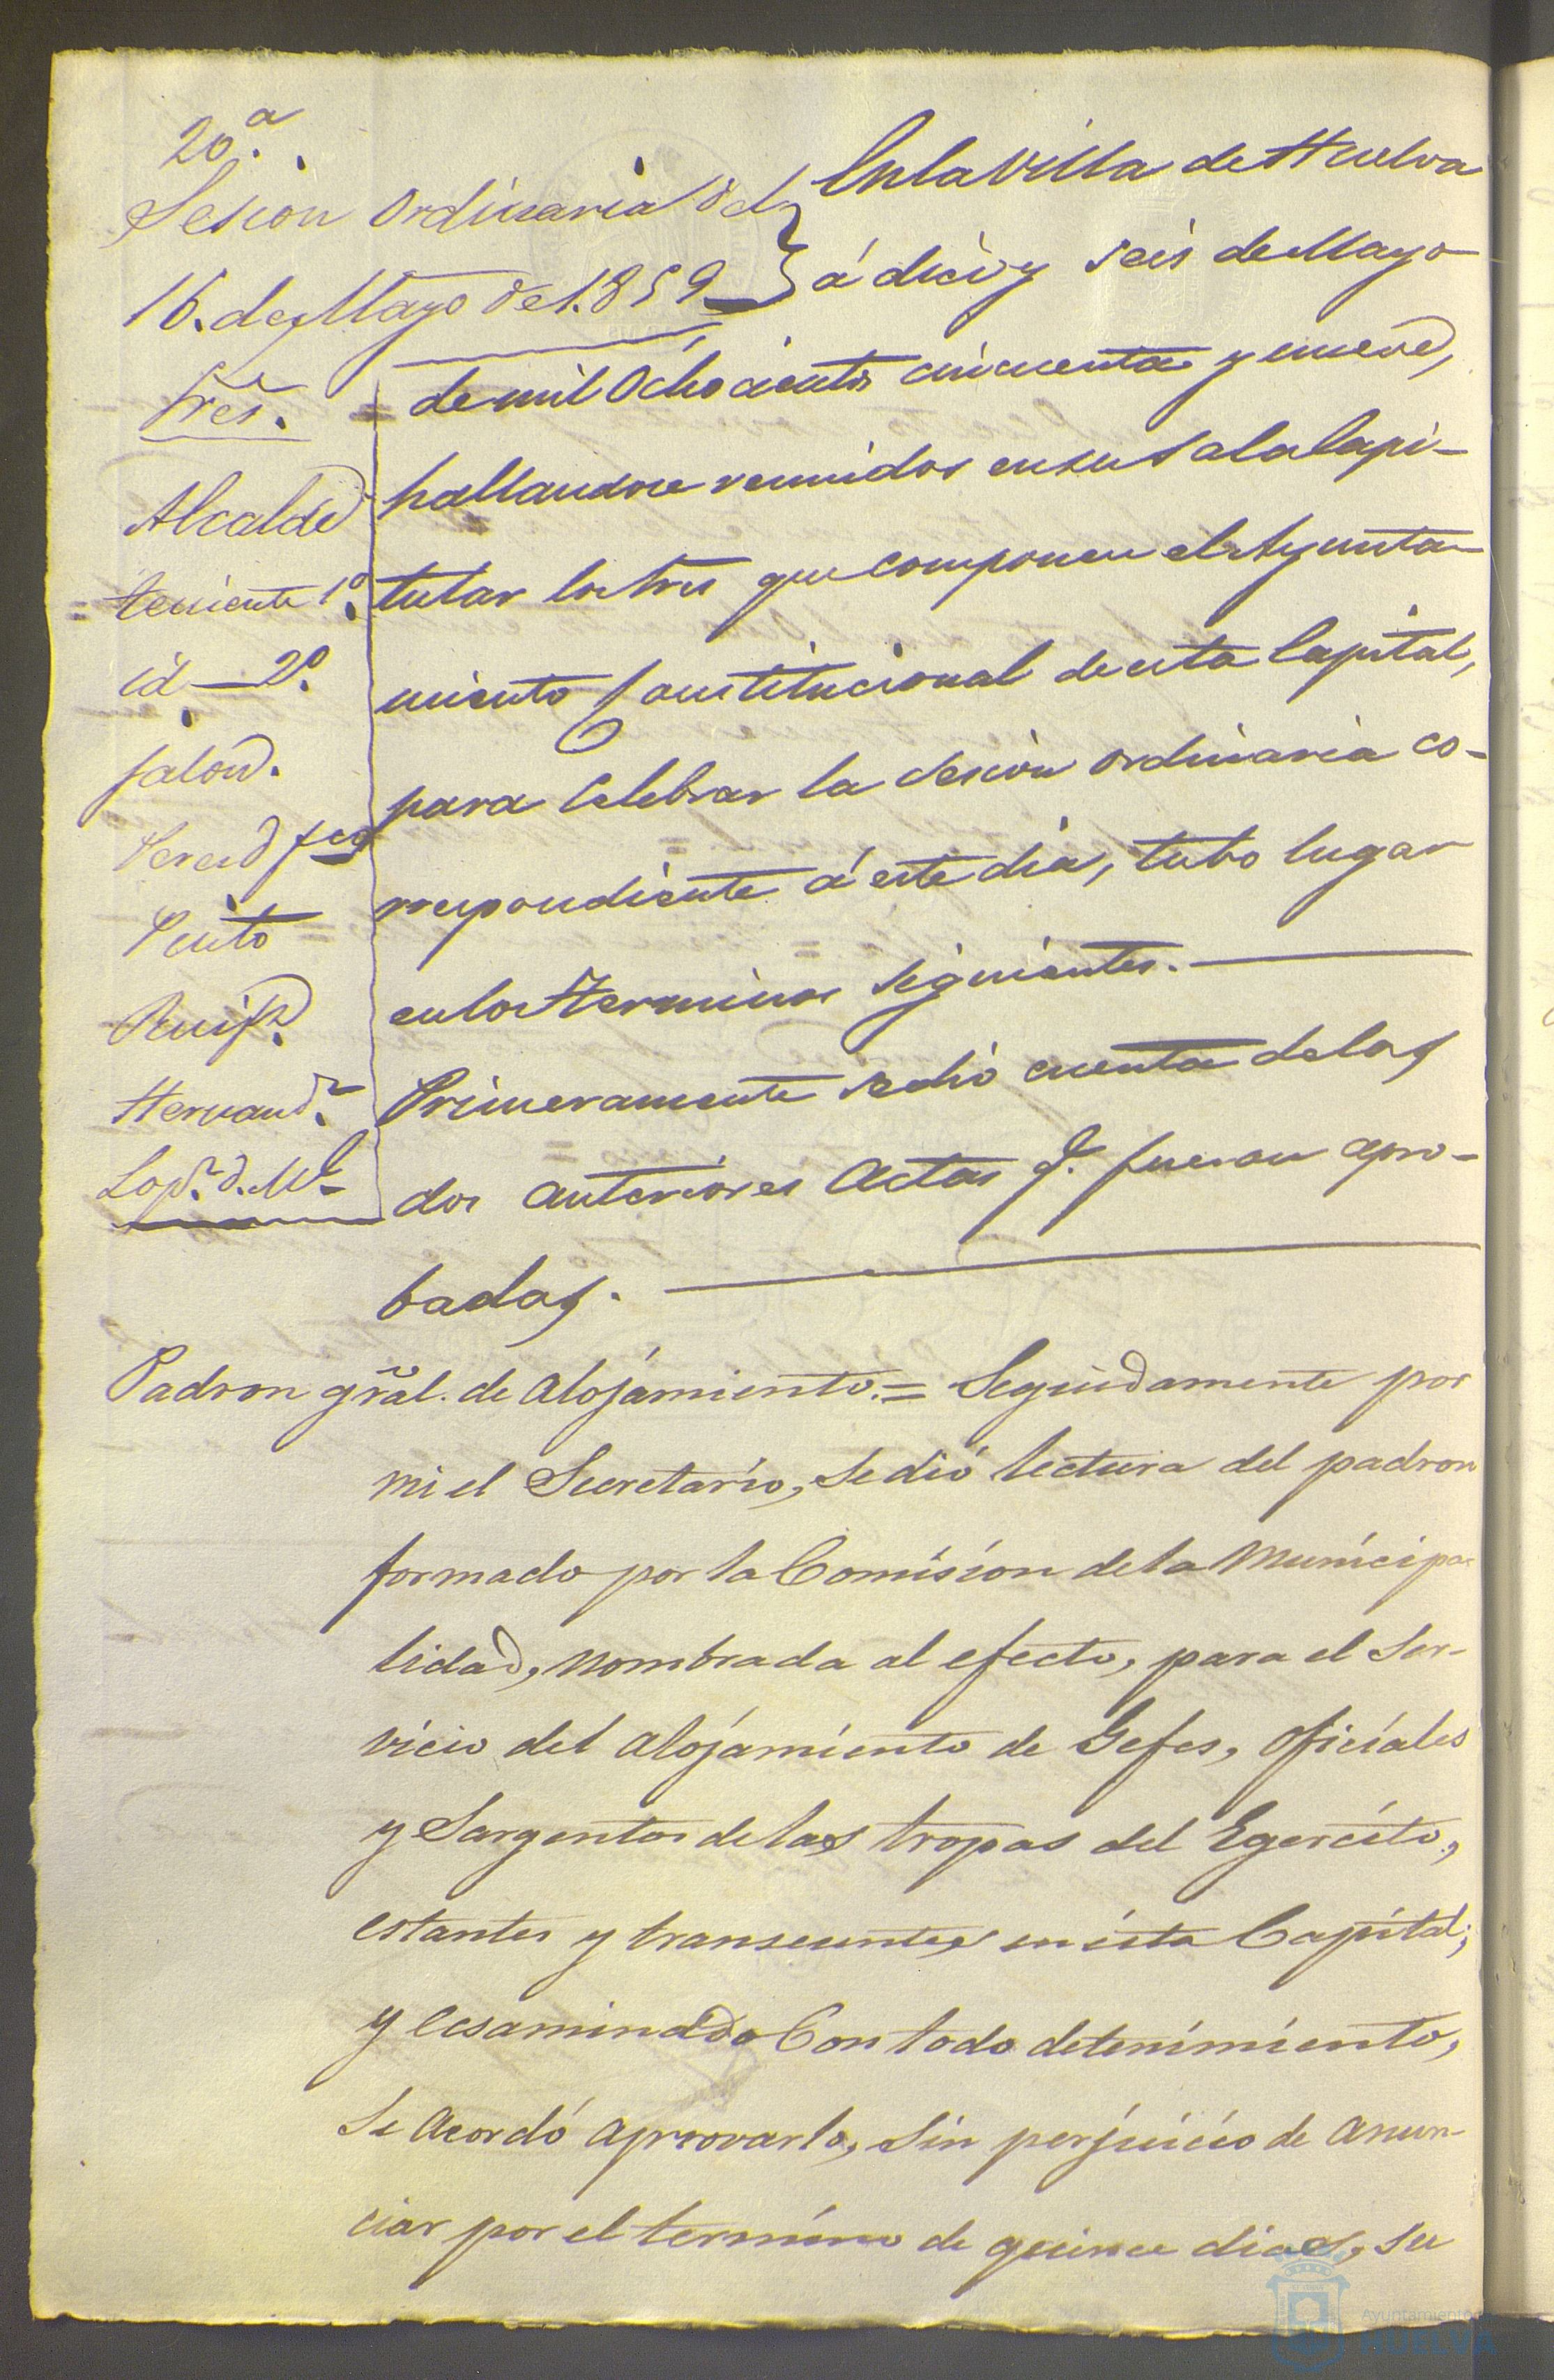 20ª.
Sesion Ordinaria del
16. de Mayo de 1.859
Sres.
Alcalde
teniente 1º.
id — 2º.
Jalon.
Perez
Pinto
Hernandz.
En la Villa de Huelva
á diez y seis de Mayo
de mil Ochocientos cincuenta y nueve,
hallandose reunidos en su Sala Capi-
tular los Sres que componen el Ayunta-
miento Constitucional de esta Capital,
para Celebrar la sesion ordinaria co-
rrespondiente á este dia, tubo lugar
en los terminos siguientes. —
Primeramente se dió cuenta de las
dos anteriores Actas q. fueron apro-
badas. —
Padron gral. de alojamiento. = Seguidamente por
mi el Secretario, se dió lectura del padron
formado por la Comision de la Municipa-
lidad, nombrada al efecto, para el ser-
vicio del alojamiento de Gefes, oficiales
y Sargentos de las tropas del Egercito,
estantes y transeuntes en esta Capital;
y ecsaminado Con todo detenimiento,
se acordó aprovarlo, sin perjuicio de anun-
ciar por el termino de quince dias, su
Ayuntamiento
HUELVA